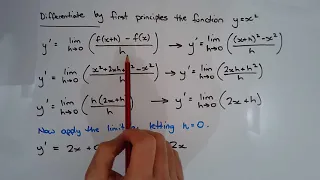 Differentiate by first principles the function y=x²
y' = lim h→0 (f(x+h) - f(x) / h) → y' = lim h→0 ((x+h)²-x² / h)
y' = lim h→0 (x²+2xh+ -x² / h) → y' = lim h→0 (2xh+h² / h)
y' = lim h→0 (h(2x+h / h) → y' = lim h→0 (2x+h)
Now apply the limit letting h=0.
y' = 2x+ 2x